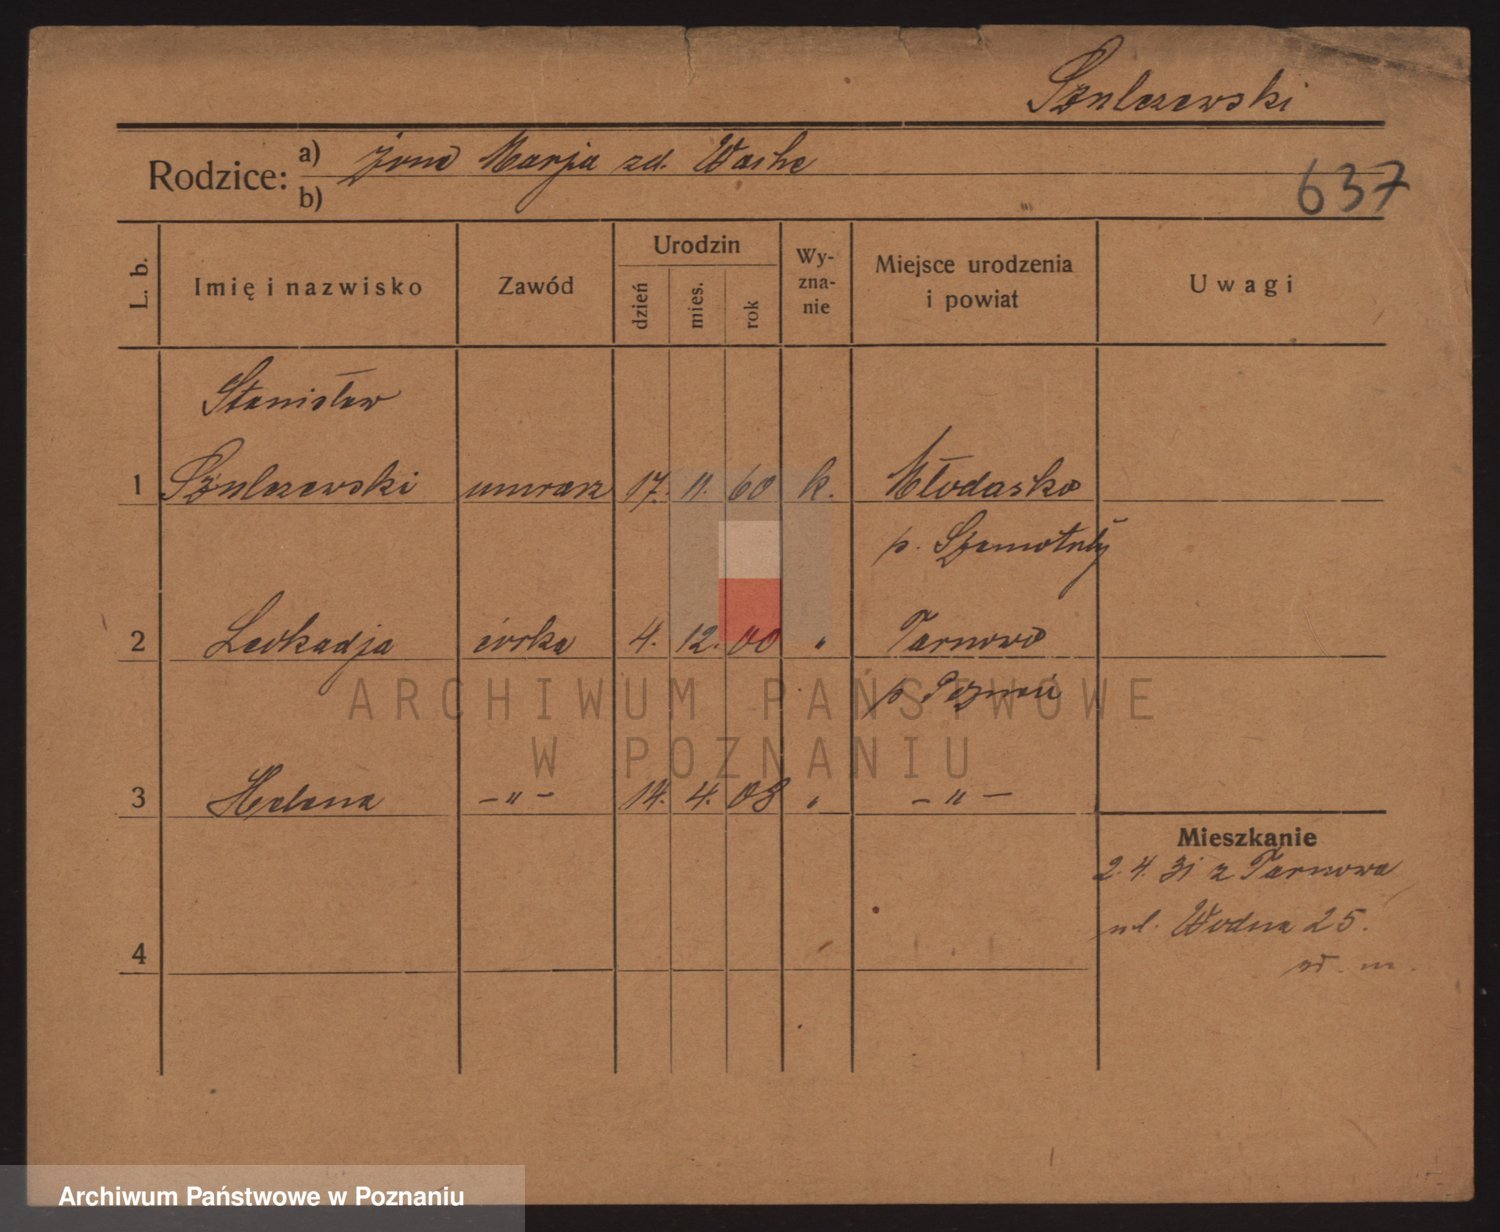 Szulczewski
Rodzice: a) żona Marja zd.
b)
637
L. b. Imię i nazwisko Zawód Urodzin dzień mies. rok Wy-zna-nie Miejsce urodzenia i powiat Uwagi
Stanisław
1 Szulczewski murarz 17. 11. 60 k. Młodasko
p. Szamotuły
2 Leokadja córka 4. 12. 00 " Tarnowo
p Poznań
3 Helena – " – 14. 4. 08 " – " –
Mieszkanie
2. 4. 31 z Tarnowa
ul. Wodna 25.
4
ARCHIWUM PAŃSTWOWE
W POZNANIU
Archiwum Państwowe w Poznaniu